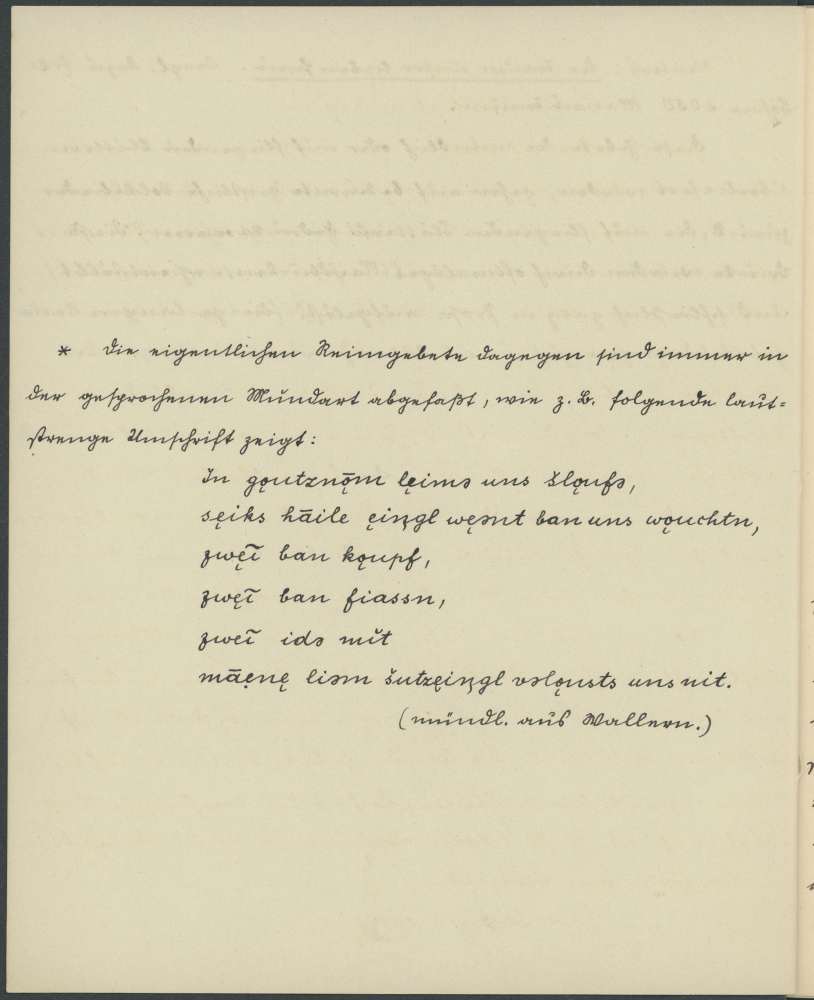 * Die eigentlichen Reimgebete dagegen sind immer in
der gesprochenen Mundart abgefaßt, wie z. B. folgende laut=
strenge Umschrift zeigt:
In gǫutznǭm lęimə uns šlǫufə,
sęiks hāile ęiŋgl węənt ban uns wǫuchtn,
zwęī ban kǫupf,
zwęī ban fiassn,
zweī idə mit
māęnę liəm šutzęiŋgl vəlǫusts uns nit.
(mündl. aus Wallern.)